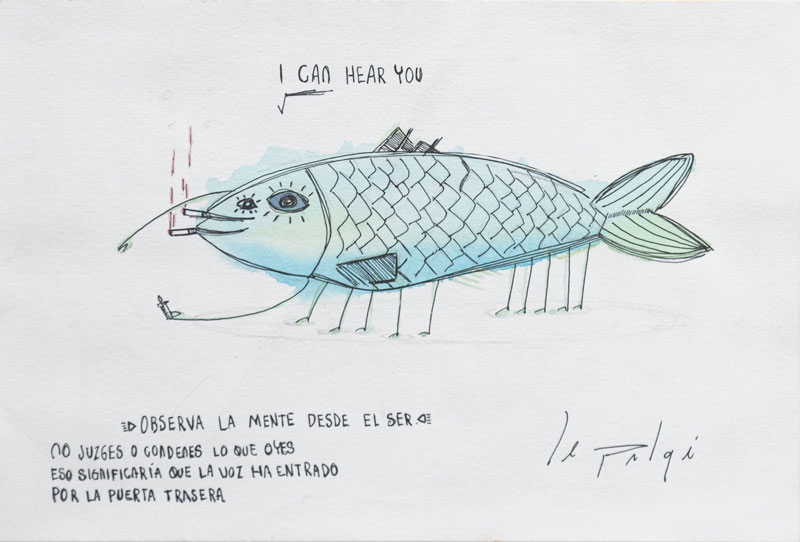 I CAN HEAR YOU
OBSERVA LA MENTE DESDE EL SER.
NO JUZGES O CONDENES LO QUE OYES
ESO SIGNIFICARÍA QUE LA VOZ HA ENTRADO
POR LA PUERTA TRASERA
le pulqi